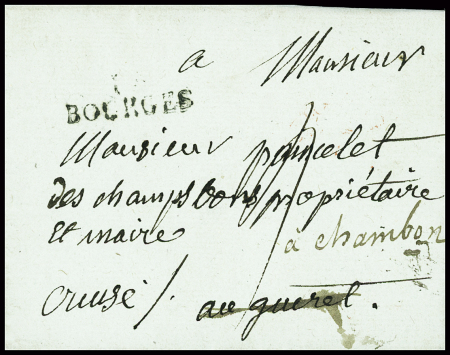 a Monsieur
BOURGES
Monsieur poncelet
des champs bons propriétaire
et maire à chambon
creuse /. au gueret.